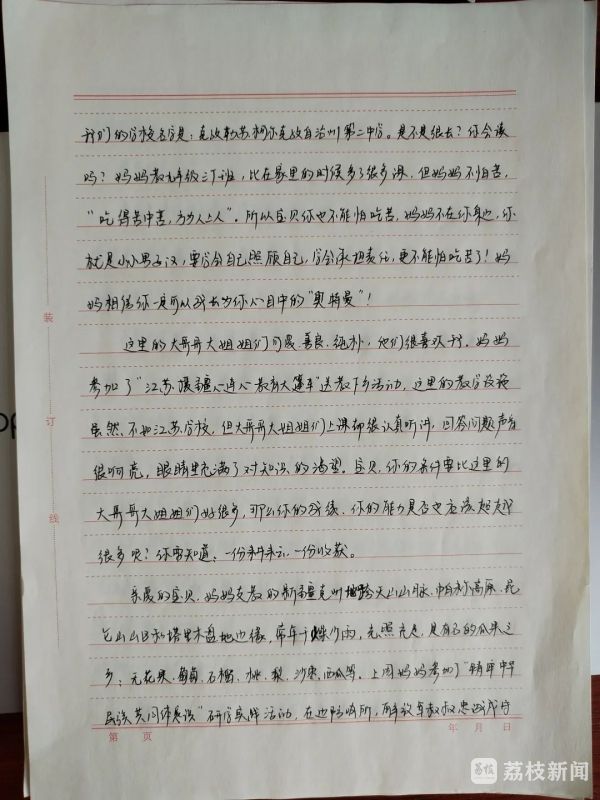 我们的学校名字是：克孜勒苏柯尔克孜自治州第二中学。是不是很长？你会读
吗？妈妈教九年级三个班，比在家里的时候多了很多课，但妈妈不怕苦，
“吃得苦中苦，方为人上人”。所以宝贝你也不能怕吃苦，妈妈不在你身边，你
就是小小男子汉，要学会自己照顾自己，学会承担责任，更不能怕吃苦了！妈
妈相信你一定可以成长为你心目中的“奥特曼”！
这里的大哥哥大姐姐们可爱、善良、纯朴，他们很喜欢我。妈妈
参加了“江苏援疆心连心教育大篷车”送教下乡活动，这里的教学设施
虽然不如江苏学校，但大哥哥大姐姐们上课都很认真听讲，回答问题声音
很响亮，眼睛里充满了对知识的渴望。宝贝，你的条件要比这里的
大哥哥大姐姐们好很多，那么你的成绩、你的能力是否也应该超越
很多呢？你要知道：一份耕耘，一份收获。
亲爱的宝贝，妈妈支教的新疆克州地跨天山山脉、帕米尔高原、昆
仑山山区和塔里木盆地边缘，常年干燥少雨，光照充足，是有名的瓜果之
乡：无花果、葡萄、石榴、桃、梨、沙枣、西瓜等。上周妈妈参加了“铸牢中华
民族共同体意识”研学实践活动，在边防哨所，解放军叔叔忠诚戍守
装
订
线
第 页
年 月 日
荔枝
荔枝新闻